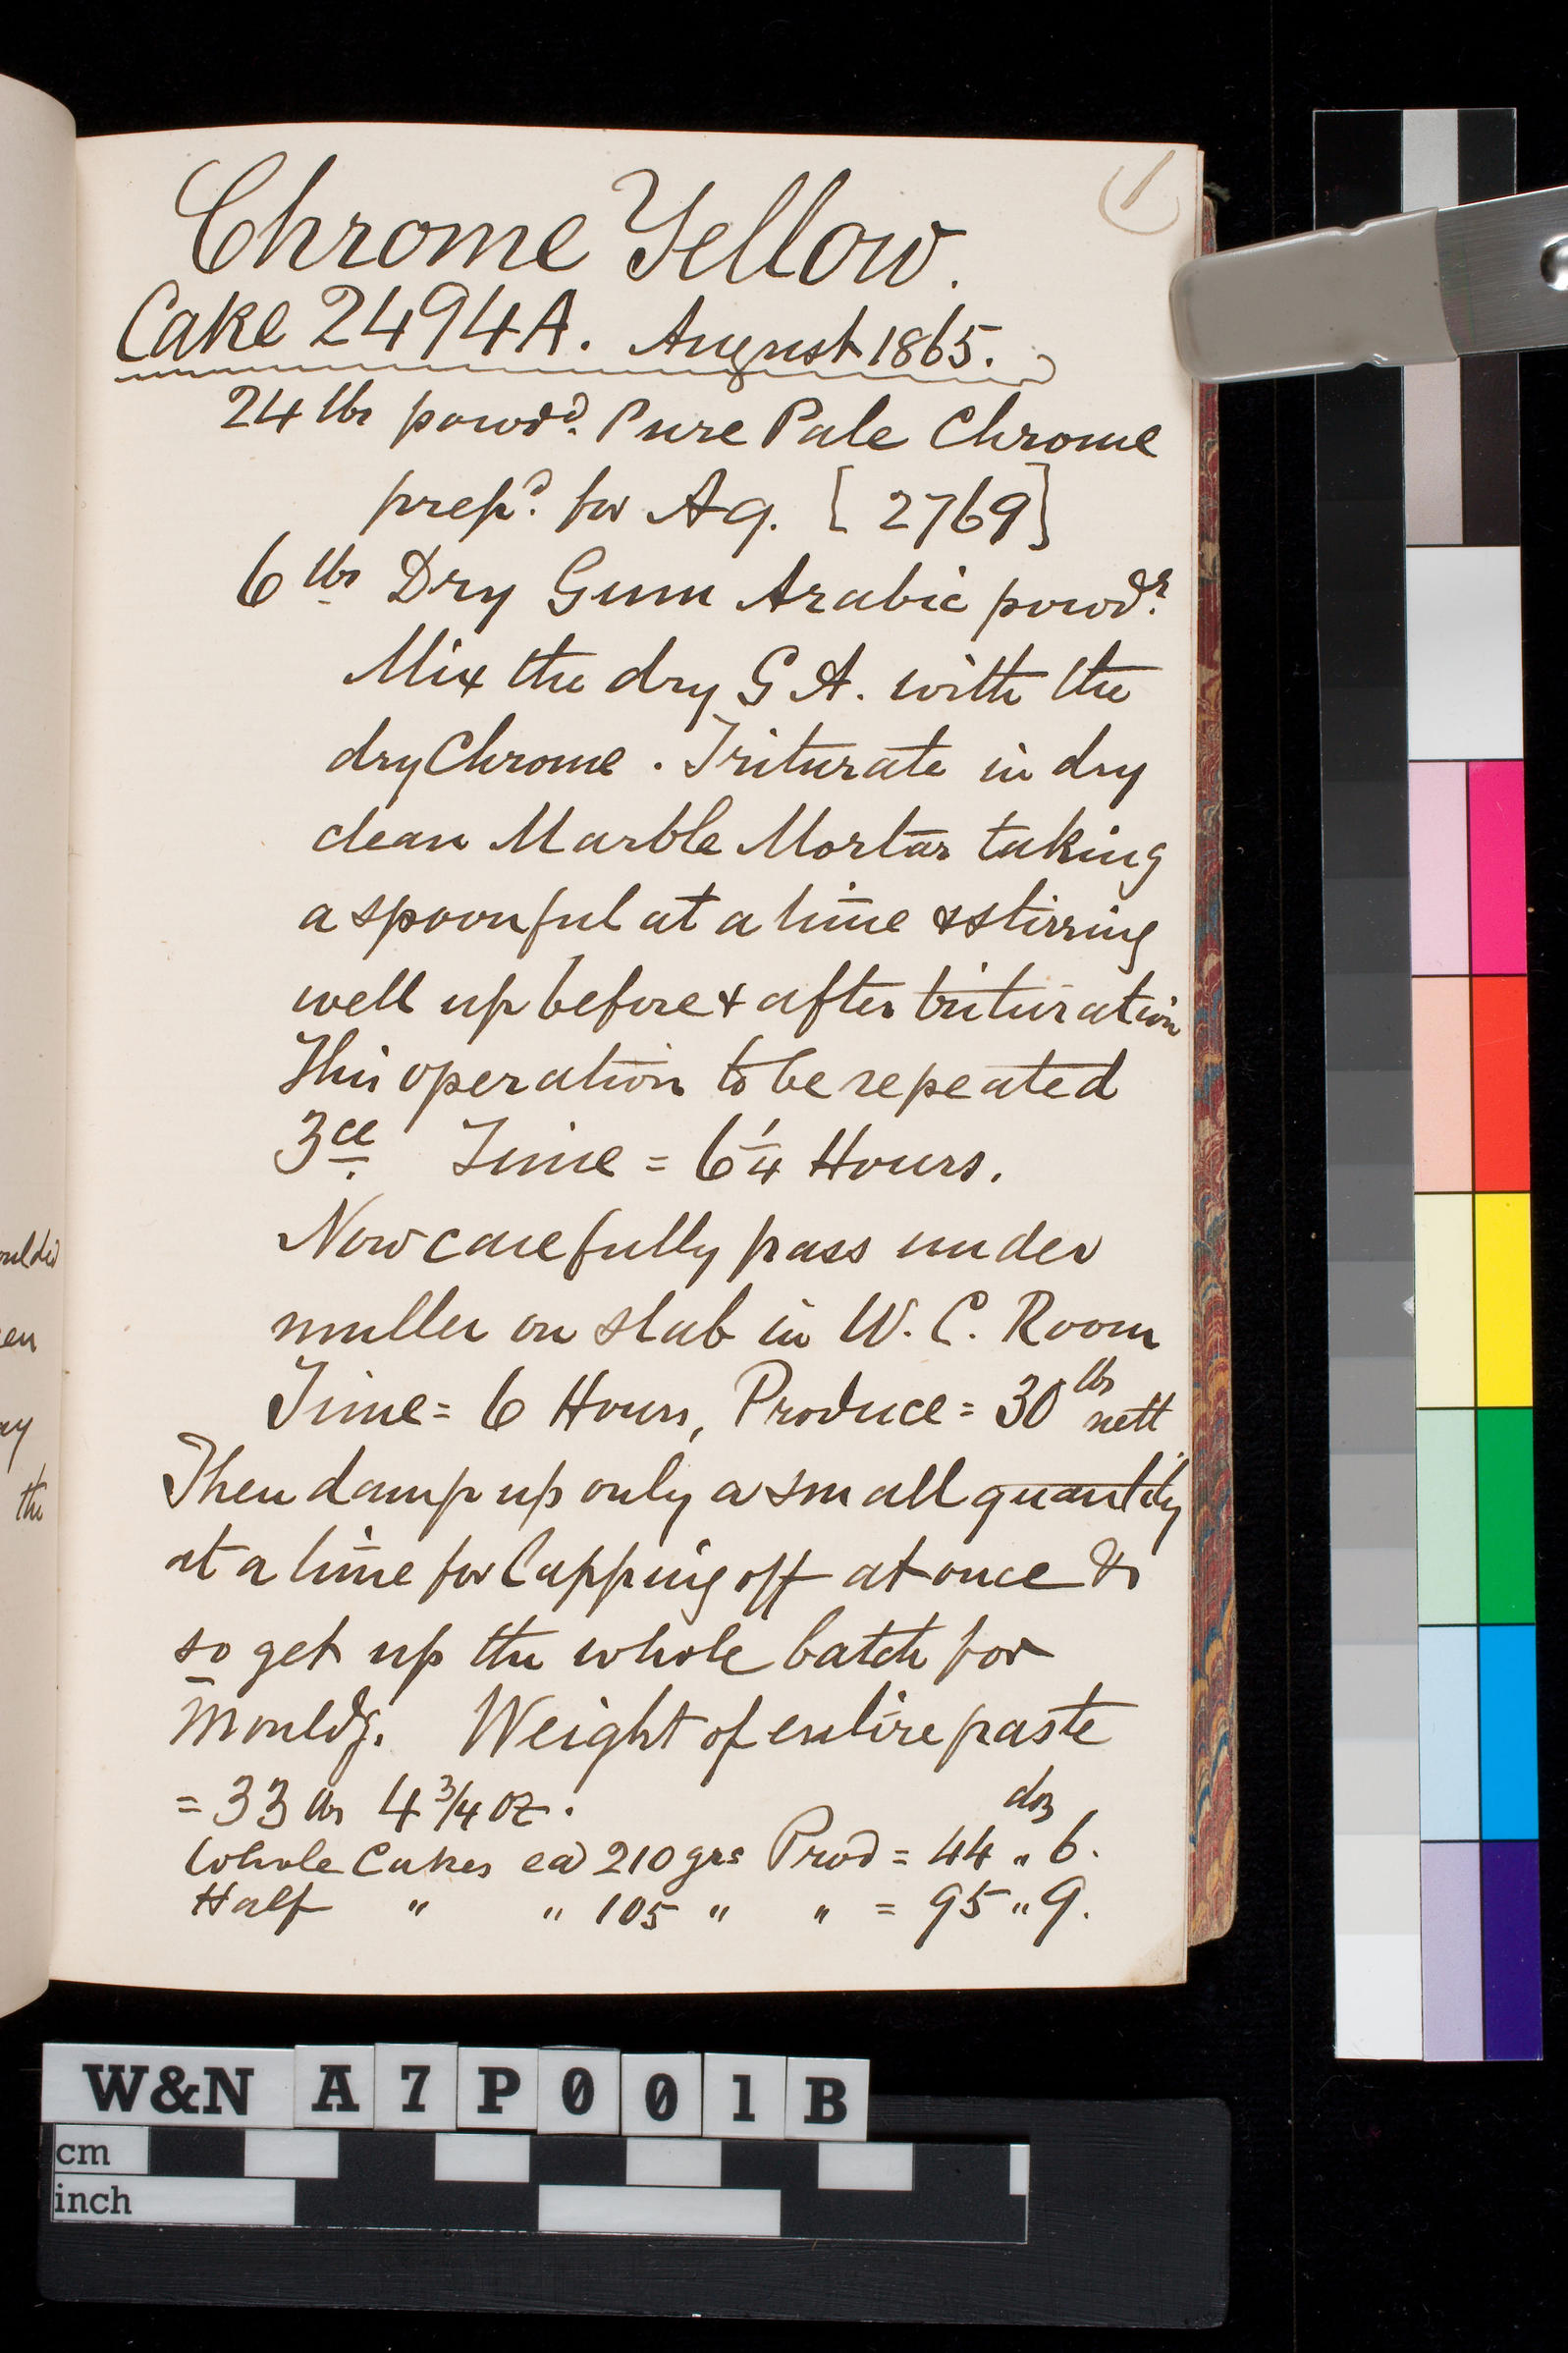 1
Chrome Yellow.
Cake 2494A. August 1865.
24 lbs powdd. Pure Pale Chrome
prepd. for Aq. [2769]
6 lbs Dry Gum Arabic powdr.
Mix the dry G A. with the
dry Chrome. Triturate in dry
clean Marble Mortar taking
a spoonful at a time & stirring
well up before & after trituration
This operation to be repeated
3ce. Time = 6 1/4 Hours.
Now carefully pass under
muller on slab in W. C. Room
Time = 6 Hours, Produce = 30 lbs nett
Then damp up only a small quantity
at a time for lapping off at once &
so get up the whole batch for
Mouldg. Weight of entire paste
= 33 lbs 4 3/4 oz.
doz
Whole Cakes ea 210 grs Prod = 44 " 6.
Half " " 105 " " = 95 " 9.
en
ay
the
W&N A7P001B
cm
inch